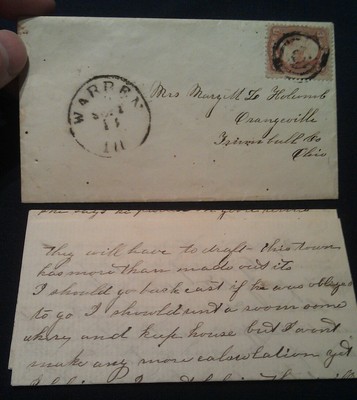 WARREN
11
ILL
Mrs Mary M De Holcomb
Orangeville
Trumbull Co
Ohio
They will have to draft this town
has more than made out its
I should go back east if he was obliged
to go I should rent a room some
where and keep house but I wont
make any more calculation yet